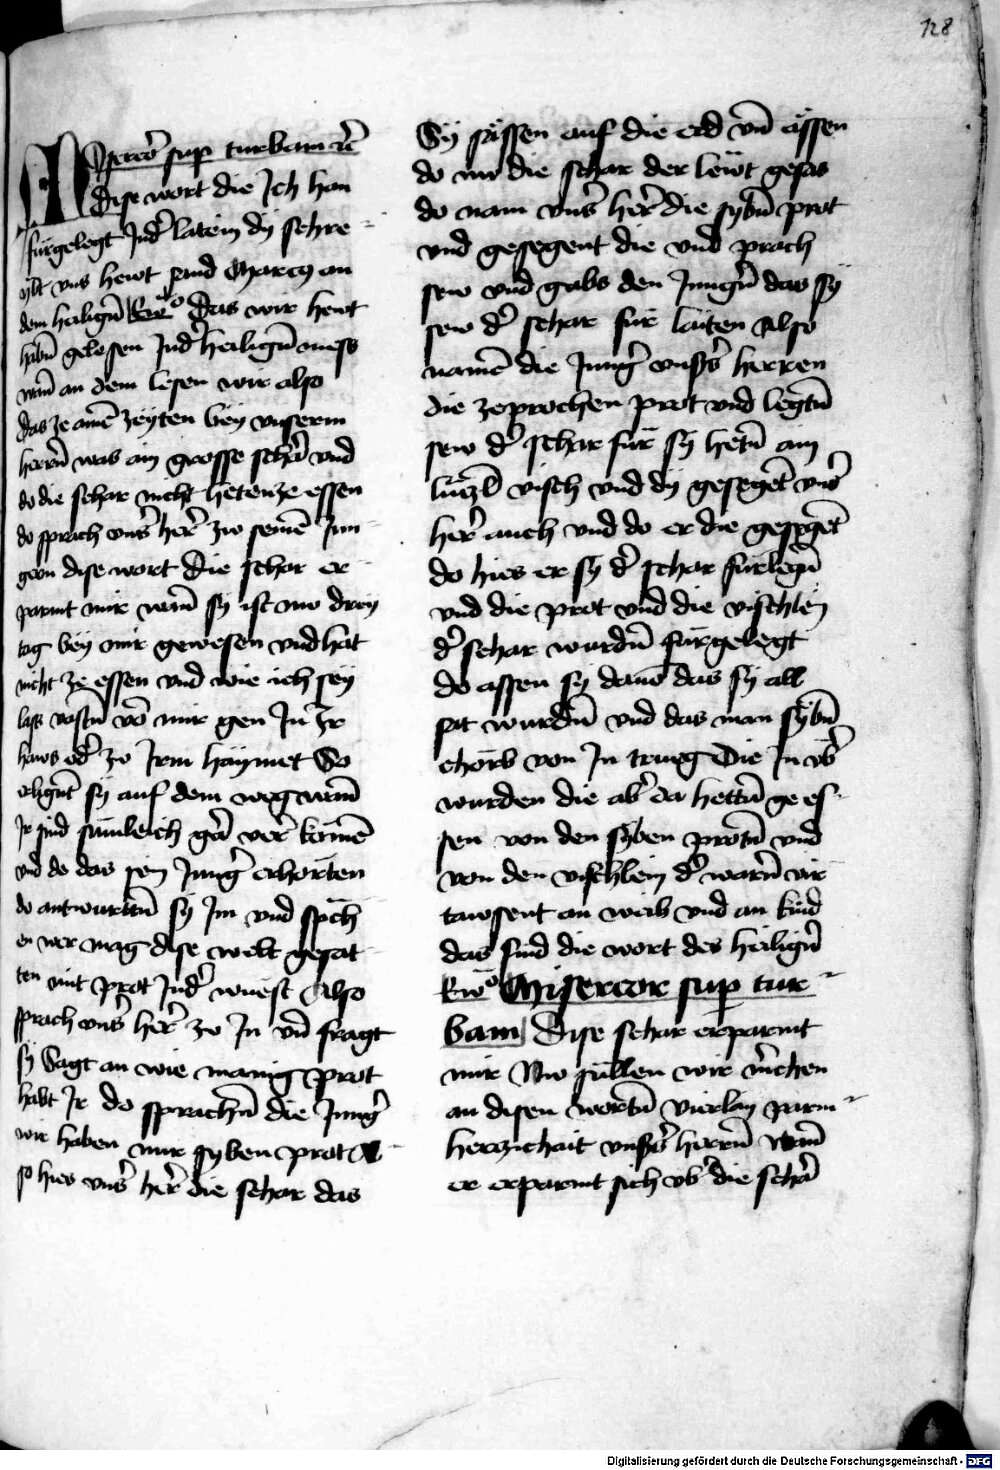 128
Misereor sup turbam etc̄
Dise wort die Ich han
fürgelegt Ind͛ latein dy schre
ybt vns hewt sand Marcus an
dem heilign̄ Ewo Das wir hewt
habn̄ gelesen Ind͛ heilign̄ mess
wan̄ an dem lesen wir also
das ze ainē zeyten bey vnserm
herrn̄ was ain grosse schar͛ vnd
do die schar nicht heten ze essen
do sprach vns͛ her͛ zw seinē Jun
gern dise wort die schar er
parmt mir wan̄ sy ist nw drey
tag bey mir gewesen vnd hat
nicht ze essen vnd wie ich sey
lass vastn̄ vō mir gen In Ir
haws od͛ zo Irem haymet So
erlignt sy auf dem weg wan̄
Ir sind sümleich gar͛ ver͛ komē
vnd do das sein Jung͛ erhorten
do antwurttn̄ sy Im vnd sp̄ch
en wer mag dise welt gesat
ten mit prot Ind͛ wüest Also
sprach vns͛ her͛ zo In vn̄ fragt
sy Sagt an wie manig prot
habt Ir do sprachn̄ die Jung͛
wir haben nur syben prot A
so hies vns͛ her͛ die schar das
Sy sässen auf die erd vn̄ ässen
do nu die schar der lewt gesas
do nam vns͛ her͛ die sybn̄ prot
vnd gesegent die vnd prach
sew vnd gabs den Jungn̄ das sy
sew d͛ schar für laiten Also
namē die Jung͛ vnss͛s herren
die zeprochen prot vnd legtn̄
sew d͛ schar für sy hetn̄ ain
lüczl visch vnd dy gesegēt vns͛
her͛ auch vnd do er die gesegēt
do hies er sy d͛ schar fürlegn̄
vnd die prot vnd die vischlein
d͛ schar wurdn̄ fürgelegt
do assen sy dauō das sy all
sat wurdn̄ vnd das man sybn̄
chörb von In trug Die In vb͛
wurden die ab͛ da hettn̄ ge es
sen von den syben protn̄ vnd
von den vischlein d͛ warn̄ vir
tawsent an weib vnd an kind
das sind die wort des heilign̄
Ewo Misereor sup tur
bam Dise schar erparmt
mir Nw süllen wir m͛chen
an disen wortn̄ vierlay parm
herczichait vnss͛s herrn̄ wan̄
er erparmt sich vb͛ die schar͛
Digitalisierung gefördert durch die Deutsche Forschungsgemeinschaft - DFG